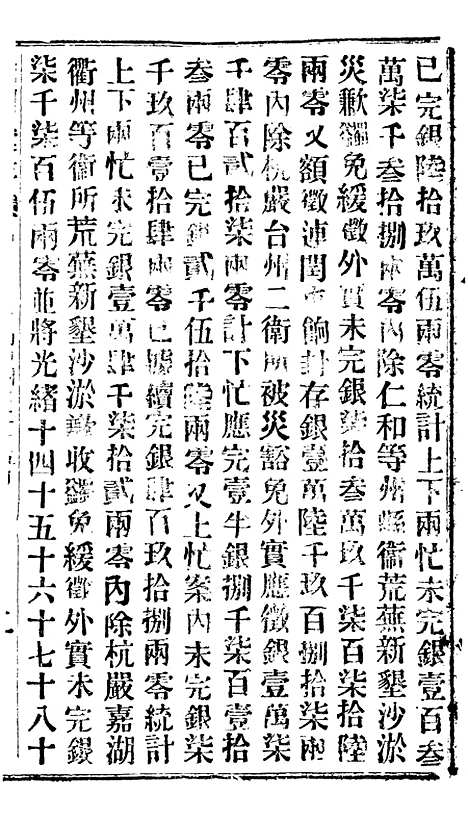 已完銀陸拾玖萬伍兩零統計上下兩忙未完銀壹百叁
萬柒千叁拾捌兩零內除仁和等州縣衞荒蕪新墾沙淤
災歉蠲免緩徵外實未完銀柒拾叁萬玖千柒百柒拾陸
兩零又額徵連閏 餉封存銀壹萬陸千玖百捌拾柒兩
零內除杭嚴台州二衞所被災豁免外實應徵銀壹萬柒
千肆百貳拾柒兩零計下忙應完壹半銀捌千柒百壹拾
叁兩零已完銀貳千伍拾陸兩零又上忙案內未完銀柒
千玖百壹拾肆兩零已據續完銀肆百玖拾捌兩零統計
上下兩忙未完銀壹萬肆千柒拾貳兩零內除杭嚴嘉湖
衢州等衞所荒蕪新墾沙淤 收蠲免緩徵外實未完銀
柒千柒百伍兩零並將光緒十四十五十六十七十八十